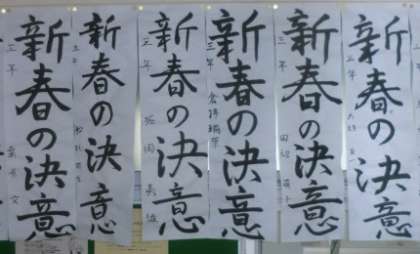 新春の決意
三年
新春の決意
三年
新春の決意
三年
新春の決意
三年
新春の決意
三年
新春の決意